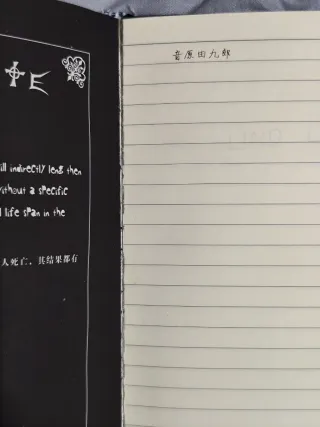 TE
ill indirectly leng then
without a specific
l life span in the
人死亡，其结果都有
音原田九郎